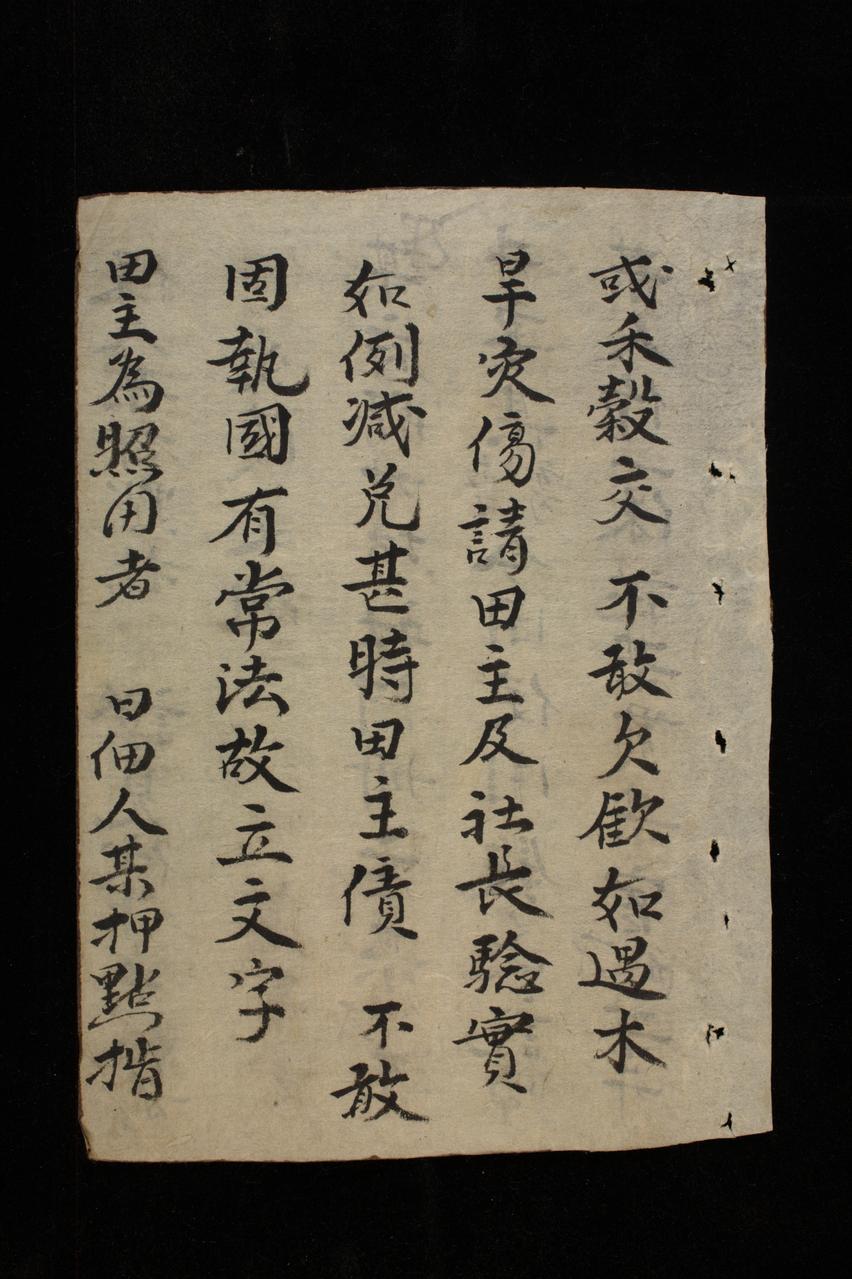 或禾穀交不敢欠歉如遇木
旱灾傷請田主及社長驗實
如例减兑甚時田主債不敢
固執國有常法故立文字
田主為照用者曰佃人某押點揩